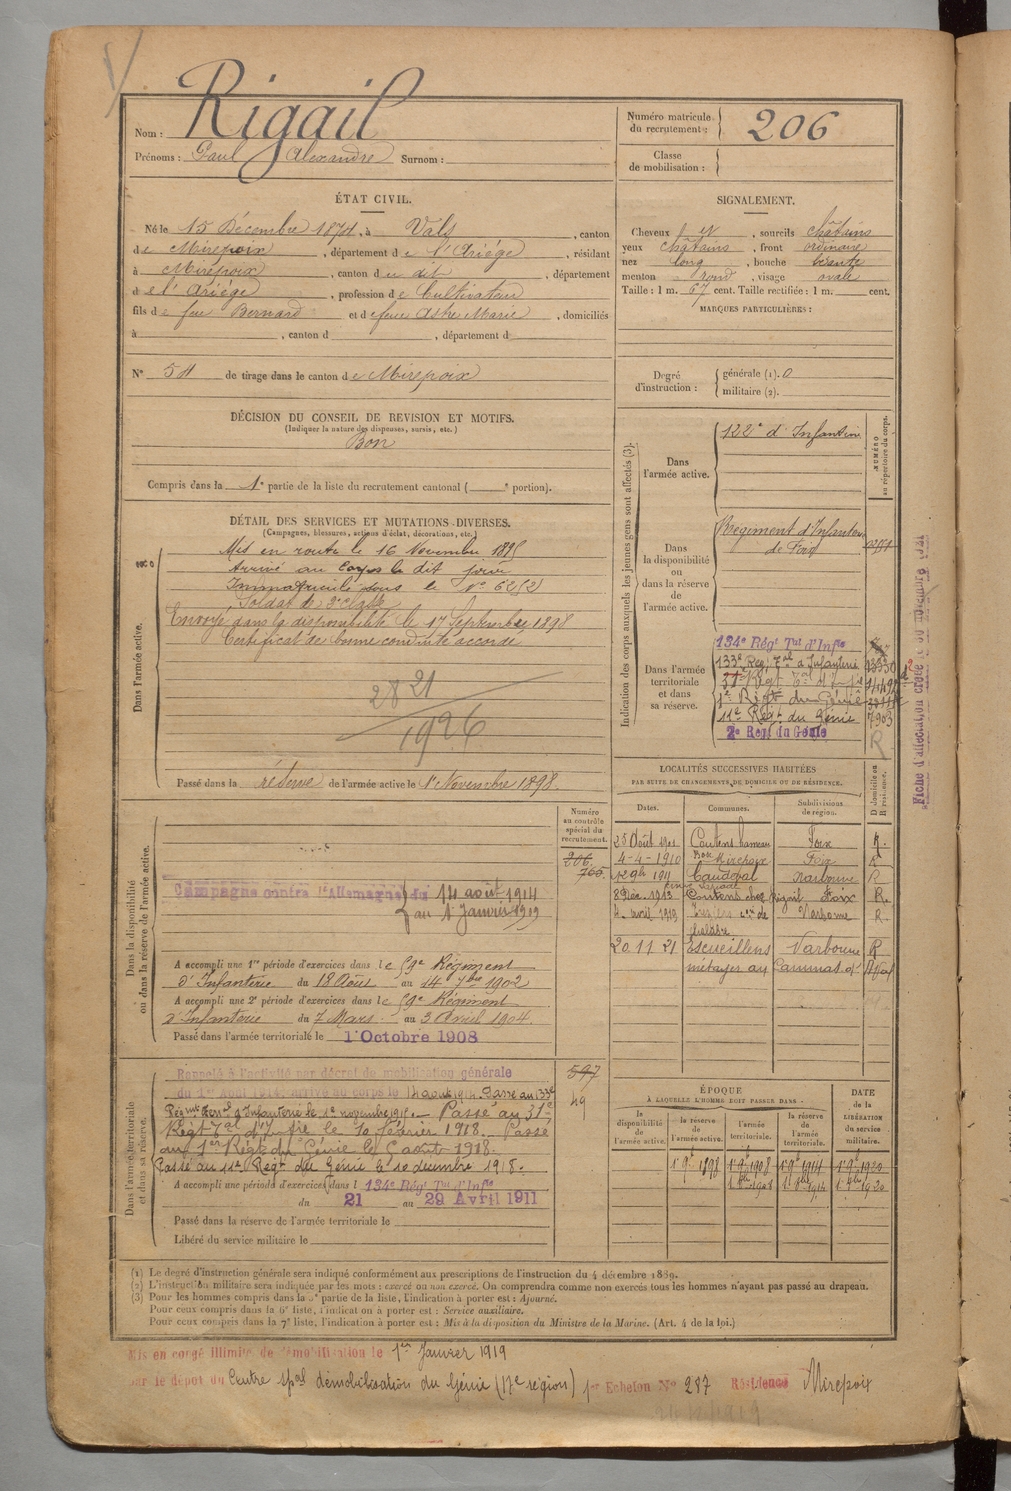 Nom : Rigail
Prénoms : Paul Alexandre Surnom :
Numéro matricule du recrutement : 206
Classe de mobilisation :
ÉTAT CIVIL.
Né le 15 Décembre 1874, à Vals, canton
de Mirepoix, département de l'Ariége, résidant
à Mirepoix, canton du dit, département
de l'Ariége, profession de Cultivateur
fils de feu Bernard et de feue Astre Marie, domiciliés
à , canton d , département d
N° 54 de tirage dans le canton de Mirepoix
SIGNALEMENT.
Cheveux , sourcils châtains
yeux châtains, front ordinaire
nez long, bouche
menton rond, visage ovale
Taille : 1 m. 67 cent. Taille rectifiée : 1 m. cent.
MARQUES PARTICULIÈRES :
Degré d'instruction : générale (1). 0
militaire (2).
DÉCISION DU CONSEIL DE REVISION ET MOTIFS.
(Indiquer la nature des dispenses, sursis, etc.)
Bon
Compris dans la 1e partie de la liste du recrutement cantonal ( e portion).
DÉTAIL DES SERVICES ET MUTATIONS DIVERSES.
(Campagnes, blessures, actions d'éclat, décorations, etc.)
Dans l'armée active.
Mis en route le 16 Novembre 1895
Arrivé au Corps le dit jour
Immatriculé sous le N° 6252
Soldat de 2e classe
Envoyé dans la disponibilité le 17 Septembre 1898
Certificat de bonne conduite accordé
2821
1926
Passé dans la réserve de l'armée active le 1er Novembre 1898.
Indication des corps auxquels les jeunes gens sont affectés (3).
NUMÉRO au répertoire du corps.
Dans l'armée active.
122e d'Infanterie
Dans la disponibilité ou dans la réserve de l'armée active.
Régiment d'Infanterie
de Foix
Dans l'armée territoriale et dans sa réserve.
134e Régt Tal d'Infie
133e Reg. Tal d'Infanterie
31e Régt Tal d'Infie
1er Régt du Génie
11e Régt du Génie 7903
2e Régt du Génie R
Fiche d'affectation créée le novembre 1921
Dans la disponibilité ou dans la réserve de l'armée active.
Numéro au contrôle spécial du recrutement.
206
766
Campagne contre l'Allemagne du 14 août 1914
au 1 Janvier 1919
A accompli une 1re période d'exercices dans le 59e Régiment
d'Infanterie du 18 Août au 14 7bre 1902
A accompli une 2e période d'exercices dans le 59e Régiment
d'Infanterie du 7 Mars au 3 Avril 1904.
Passé dans l'armée territoriale le 1er Octobre 1908
LOCALITÉS SUCCESSIVES HABITÉES
PAR SUITE DE CHANGEMENTS DE DOMICILE OU DE RÉSIDENCE.
Dates. Communes. Subdivisions de région. D domicile ou R résidence.
25 Août 1901 Coutens hameau Foix R.
4-4-1910 Mirepoix Foix R
12 9bre 1911 Caudeval Narbonne R
8 Déc. 1913 Coutens chez Rigail Foix R.
Avril 1919 Narbonne R
20 11 21 Escueillens Narbonne R
métayer au
Dans l'armée territoriale et dans sa réserve.
597
49
Rappelé à l'activité par décret de mobilisation générale
du 1er Août 1914. Arrivé au corps le 14 août 1914. Passé au 133e
Régiment Terral d'Infanterie le 1er novembre 1915. Passé au 31e
Régt Tal d'Infie le 10 février 1918. Passé
au 1er Régt du Génie le 5 août 1918.
Passé au 11e Régt du Génie le 10 décembre 1918.
A accompli une période d'exercices dans le 134e Régt Tal d'Infie
du 21 au 29 Avril 1911
Passé dans la réserve de l'armée territoriale le
Libéré du service militaire le
ÉPOQUE
À LAQUELLE L'HOMME DOIT PASSER DANS
la disponibilité de l'armée active. la réserve de l'armée active. l'armée territoriale. la réserve de l'armée territoriale.
DATE de la LIBÉRATION du service militaire.
1er 9bre 1898 1er 9bre 1908 1er 9bre 1914 1er 9bre 1920
1er 8bre 1908 1er 8bre 1914 1er 8bre 1920
(1) Le degré d'instruction générale sera indiqué conformément aux prescriptions de l'instruction du 4 décembre 1889.
(2) L'instruction militaire sera indiquée par les mots : exercé ou non exercé. On comprendra comme non exercés tous les hommes n'ayant pas passé au drapeau.
(3) Pour les hommes compris dans la 5e partie de la liste, l'indication à porter est : Ajourné.
Pour ceux compris dans la 6e liste, l'indication à porter est : Service auxiliaire.
Pour ceux compris dans la 7e liste, l'indication à porter est : Mis à la disposition du Ministre de la Marine. (Art. 4 de la loi.)
Mis en congé illimité de démobilisation le 1er Janvier 1919
par le dépôt du Centre spal démobilisation du Génie (17e région) 1er Echelon N° 287 Résidence Mirepoix